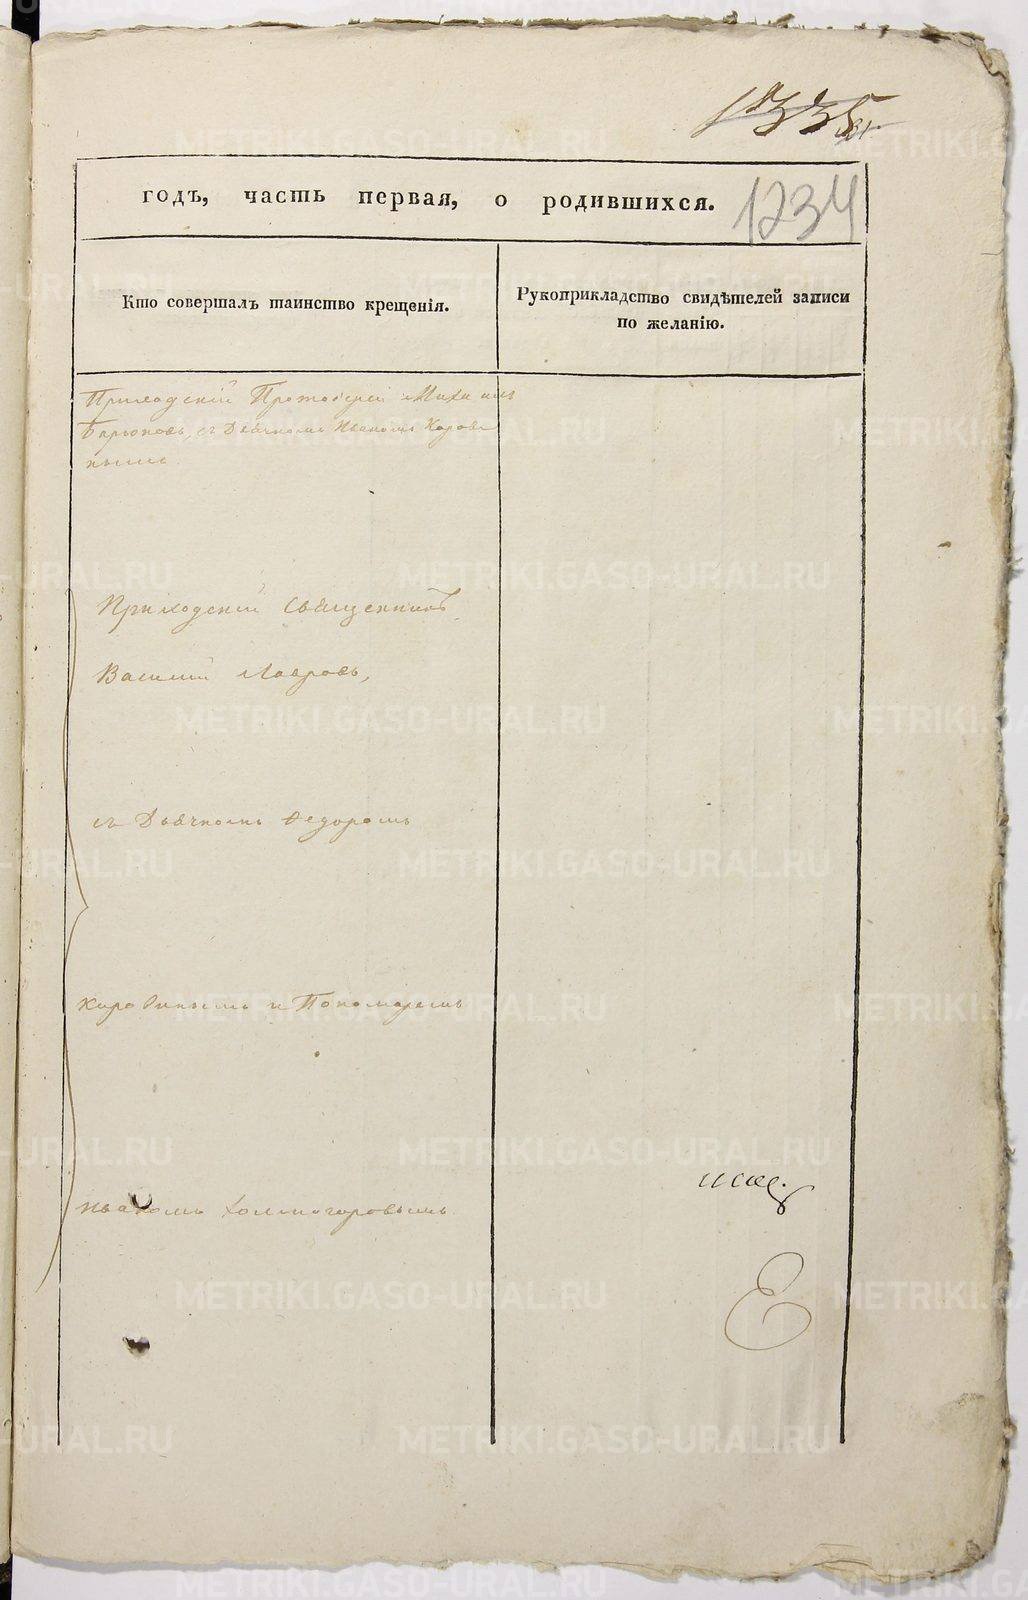 1335
годъ, часть первая, о родившихся. 1234
Кто совершалъ таинство крещенія.
Рукоприкладство свидѣтелей записи
по желанію.
Приходскій Протоіерей Михаилъ
съ Дьячкомъ Иваномъ Корови
нымъ
Приходскій Священникъ
Василій Лавровъ,
съ Дьячкомъ Ѳедоромъ
Коровинымъ и Пономаремъ
Иваномъ Холмогоровымъ
METRIKI.GASO-URAL.RU